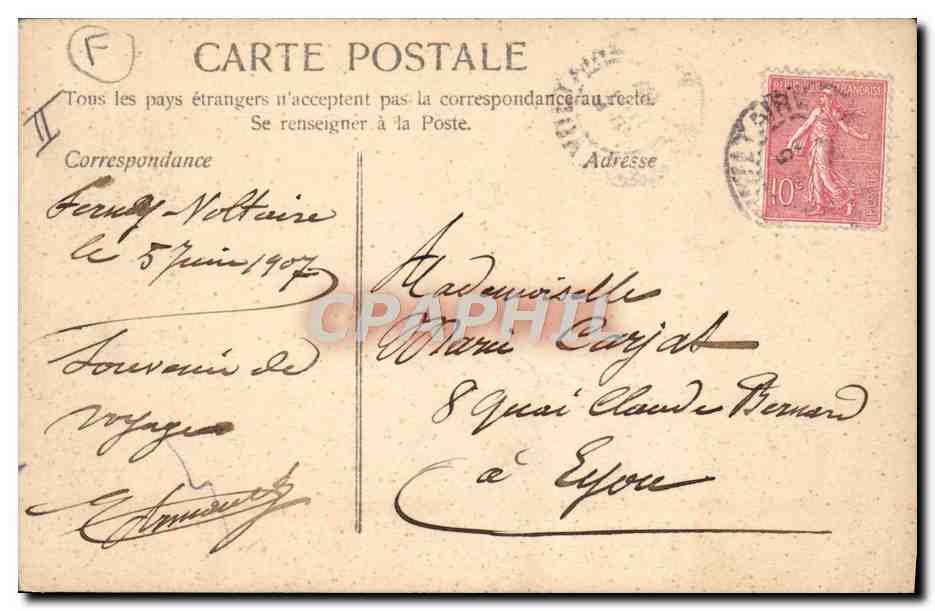 F
CARTE POSTALE
Tous les pays étrangers n'acceptent pas la correspondance au recto.
Se renseigner à la Poste.
II
Correspondance
Adresse
RÉPUBLIQUE FRANÇAISE
10c
Ferney-Voltaire
le 5 Juin 1907
Souvenir de
voyage
Mademoiselle
Marie Carjat
8 Quai Claude Bernard
à Lyon
CPAPHIL